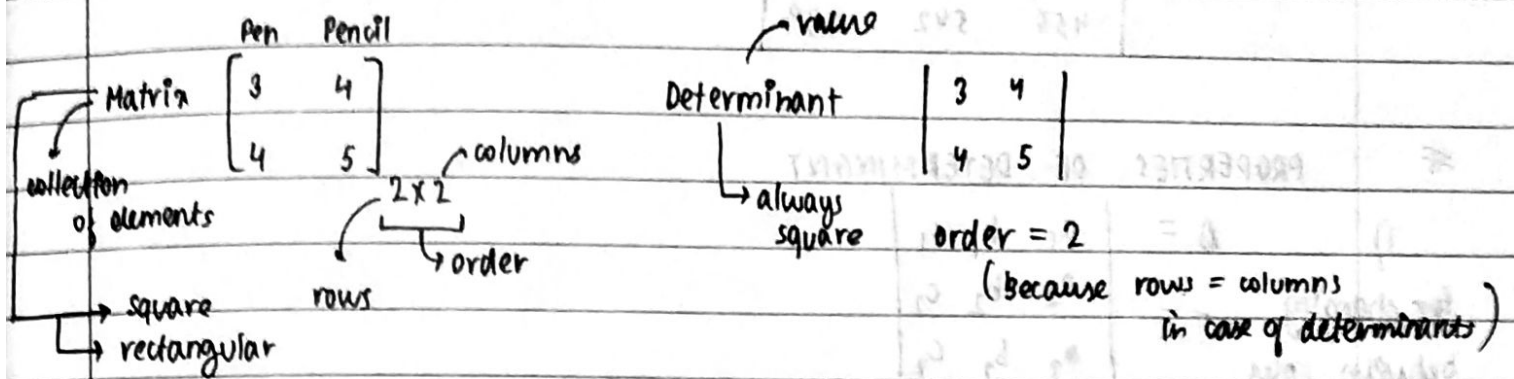 Pen Pencil
value
Matrix [ 3 4
4 5 ] 2 x 2
columns
collection
of elements
rows
order
square
rectangular
Determinant | 3 4
4 5 |
always
square
order = 2
(Because rows = columns
in case of determinants)
PROPERTIES OF DETERMINANT